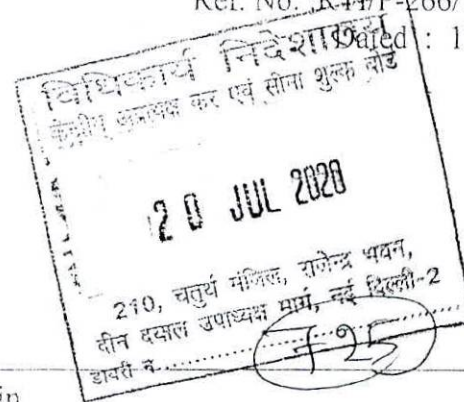 Ref. No. : R44/P-266/
Dated : 1
विधिकार्य निदेशालय
केन्द्रीय अप्रत्यक्ष कर एवं सीमा शुल्क बोर्ड
20 JUL 2020
210, चतुर्थ मंजिल, राजेन्द्र भवन,
दीन दयाल उपाध्यक्ष मार्ग, नई दिल्ली-2
डायरी नं.......... 725
in